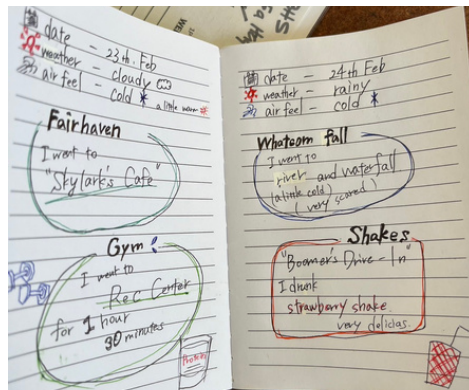 date - 23th. Feb
weather - cloudy
air feel - cold a little warm
Fairhaven
I went to
"Skylark's Cafe"
Gym
I went to
Rec Center
for 1 hour
30 minutes
Protein
date - 24th Feb
weather - rainy
air feel - cold
Whatcom fall
I went to
river and waterfall
(a little cold)
(very scared)
Shakes
"Boomer's Drive-In"
I drunk
strawberry shake.
very delicias.